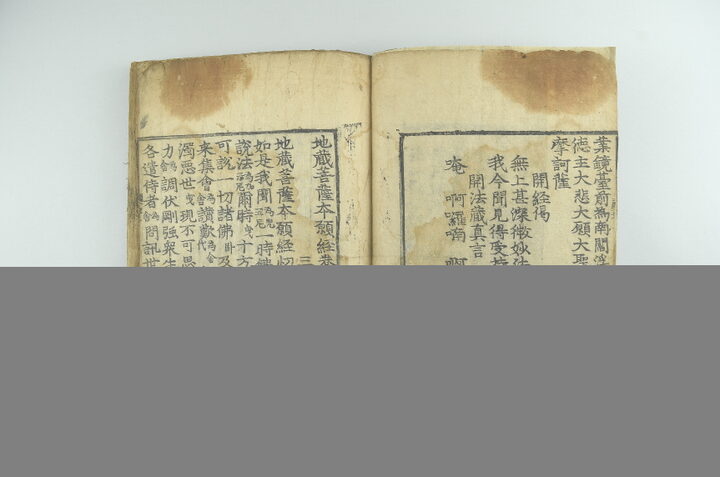 業鏡臺前為南閻浮
德主大悲大願大聖
摩訶薩
開経偈
無上甚深微妙法
我今聞見得受持
開法藏真言
唵 啊囉喃 啊
地藏菩薩本願経卷
地藏菩薩本願経忉
如是我聞一時佛
說法爾時十方
可說一切諸佛及
来集會讚歎
濁惡世現不可思
力調伏剛強衆生
各遣侍者問訊世